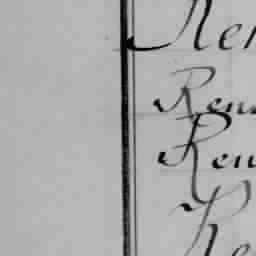 Ren
Ren
Ren
Re